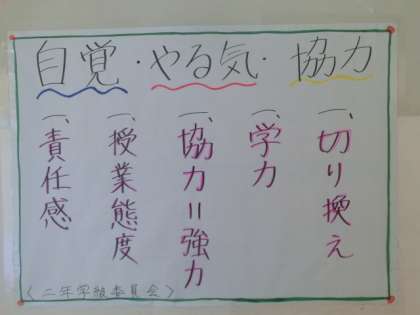 自覚・やる気・協力
一、切り換え
一、学力
一、協力＝強力
一、授業態度
一、責任感
＜二年学級委員会＞